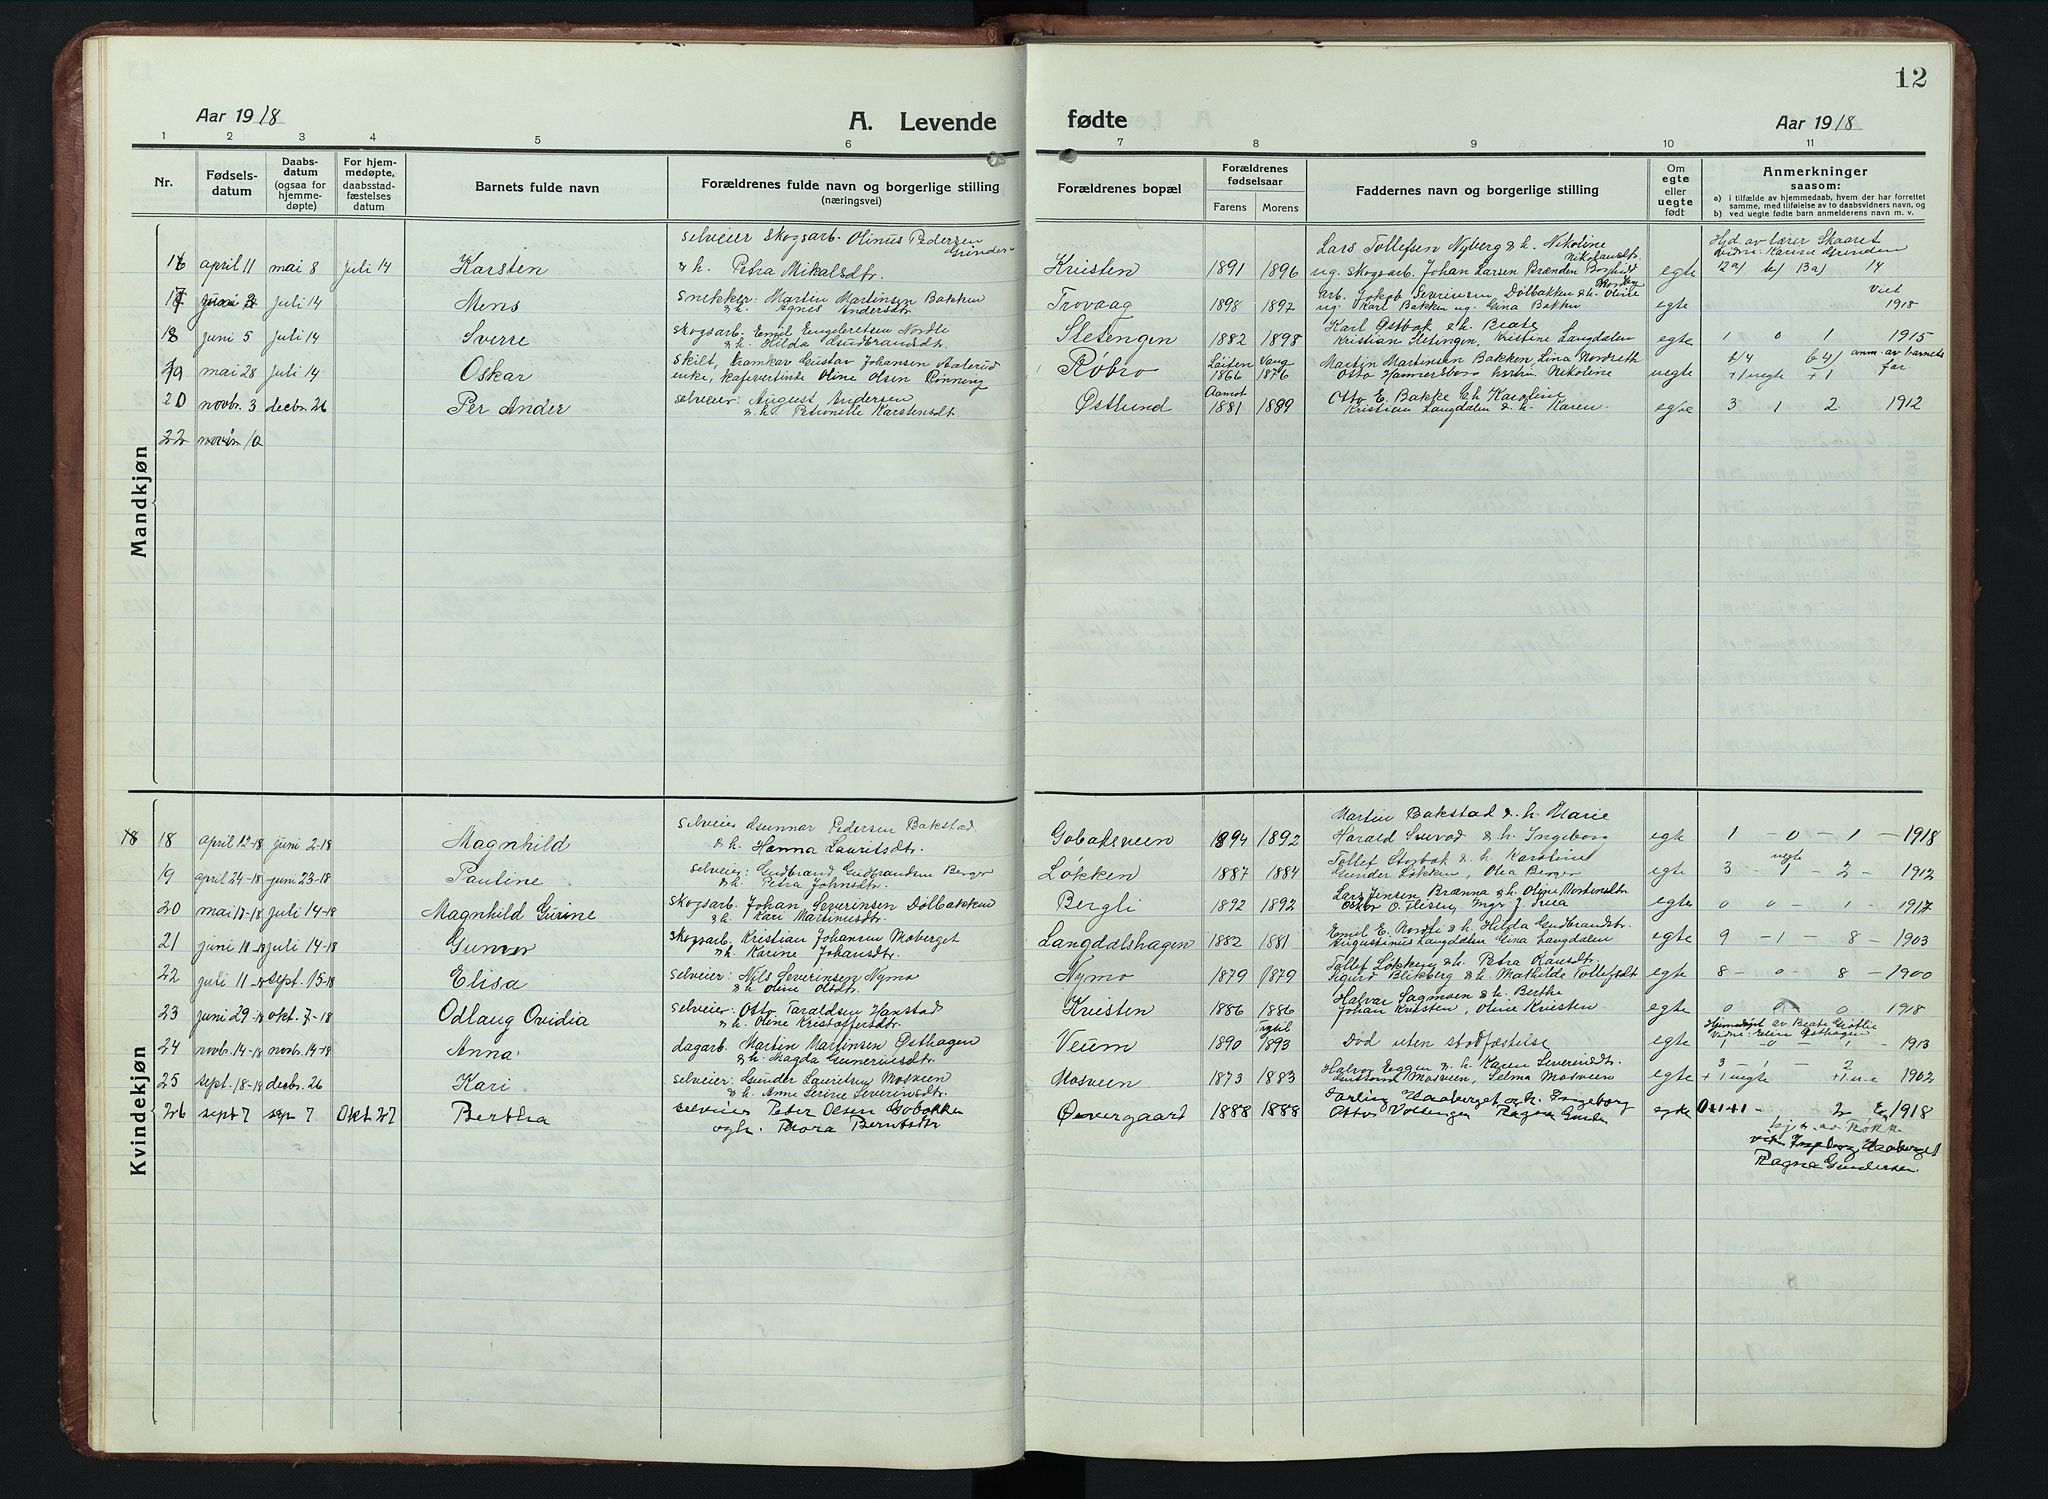 12
Aar 1918
A. Levende fødte
Aar 1918
1 2 3 4 5 6 7 8 9 10 11
Nr.
Fødsels-
datum
Daabs-
datum
(ogsaa for
hjemme-
døpte)
For hjem-
medøpte,
daabsstad-
fæstelses
datum
Barnets fulde navn
Forældrenes fulde navn og borgerlige stilling
(næringsvei)
Forældrenes bopæl
Forældrenes
fødselsaar
Farens Morens
Faddernes navn og borgerlige stilling
Om
egte
eller
uegte
født
Anmerkninger
saasom:
a) i tilfælde av hjemmedaab, hvem der har forrettet
samme, med tilføielse av to daabsvidners navn, og
b) ved uegte fødte barn anmelderens navn m. v.
Mandkjøn
selveier skogsarb. Olinus Pedersen
Grinden
Lars Tollefsen Nyberg & h. Nikoline
Nikolausdtr.
Hjd. av lærer Skaaret
vidne: Karine Grinden
16 april 11 mai 8 juli 14 Karsten & h. Petra Mikalsdtr. Kvisten 1891 1896 ug. skogsarb. Johan Larsen Brænden Borghild egte 2a) b) 13a) 14
17 juni 2 juli 14 Mens snekker Martin Martinsen Bakken
& h. Agnes Andersdtr. Trovaag 1898 1892 arb. Jakob Severinsen Dølbakken & h. Oline
ug. Karl Bakken ug. Gina Bakken egte viet
1918
18 juni 5 juli 14 Sverre skogsarb. Emil Engebretsen Nordli
& h. Hilda Gudbrandsdt. Sletengen 1882 1898 Karl Østbak & h. Beate
Kristian Sletengen, Kristine Langdalen egte 1 0 1 1915
19 mai 28 juli 14 Oskar skilt, Gustav Johansen Aalerud
enke, kafevertinde Oline Olsen Rønning Røbro Løiten Vang
1866 1876 Martin Martinsen Bakken, Lina Nordseth
Otto Hammersborg hustru Nikoline uegte b/4 b 4) anm. av barnets
+1 uegte +1 far.
20 novbr. 3 decbr. 26 Per Ander selveier: August Andersen
& h. Petronelle Karstensdt. Østlund Aamot
1881 1889 Otto E. Bakke & h. Karoline
Kristian Langdalen & h. Karen. egte 3 1 2 1912
22 novbr. 10
Kvindekjøn
18 18 april 12-18 juni 2-18 Magnhild selveier Gunnar Pedersen Bakstad
& h. Hanna Lauritsdtr. Gobakveen 1894 1892 Martin Bakstad & h. Marie
Harald & h. Ingeborg egte 1 - 0 - 1 - 1918
19 april 24-18 juni 23-18 Pauline selveier: Gudbrand Gudbrandsen Berger
& h. Petra Johnsdtr. Løkken 1887 1884 Tollef Storbak & h. Karoline
Gunder Løkken, Olea Berger egte 3 uegte 1 - 2 - 1912
20 mai 17-18 juli 14-18 Magnhild Gurine skogsarb. Johan Severinsen Dølbakken
& h. Kari Martinusdtr. Bergli 1892 1892 Lars Jensen Brænna & h. Oline Mortensdtr.
egte 0 - 0 - 1 - 1917
21 juni 11-18 juli 14-18 Gunvor skogsarb. Kristian Johansen Moberget
& h. Karine Johansdtr. Langdalshagen 1882 1881 Emil E. Nordli & h. Hilda Gudbrandsdtr.
Augustinus Langdalen Gina Langdalen egte 9 - 1 - 8 - 1903
22 juli 11-18 sept. 15-18 Elisa selveier: Nils Severinsen Nymo
& h. Oline Olsdtr. Nymo 1879 1879 Tollef Løkberg & h. Petra Hansdtr.
Sigurd Blikberg & h. Mathilde Tollefsdt egte 8 - 0 - 8 - 1900
23 juni 29-18 okt. 7-18 Odlaug Ovidia selveier: Otto Taraldsen Hanstad
& h. Oline Kristoffersdtr. Kvisten 1886 1886 Halvor Sagmoen & h. Berthe
Johan Kvisten, Oline Kvisten egte 0 0 0 1918
24 novbr. 14-18 novbr. 14-18 Anna dagarb. Martin Martinsen Østhagen
& h. Magda Gunneriusdtr. Veum Trysil
1890 1893 Død uten stadfæstelse egte Hjemmedøpt av Beate Grøtlie
Vidne: Østhagen
1 - 0 - 1 - 1913
25 sept. 18-18 decbr. 26 Kari selveier: Gunder Lauritsen Mosveen
& h. Anne Serine Severinsdtr. Mosveen 1873 1883 Halvor Eggen & h. Karen Severinsdtr.
Mosveen, Selma Mosveen egte 3 - 1 - 2
+1 uegte +1 u.e 1902
26 sept 7 sep 7 Okt 27 Bertha selveier Peter Olsen Gobakken
og h. Thora Berntsdtr Øvergaart 1888 1888 Haaberget og h. Ingeborg
Otto Voltengen Ragna egte 0+1+1 2 1918
hj.d. av
vid. Ingeborg Haaberget
Ragna Gundersen